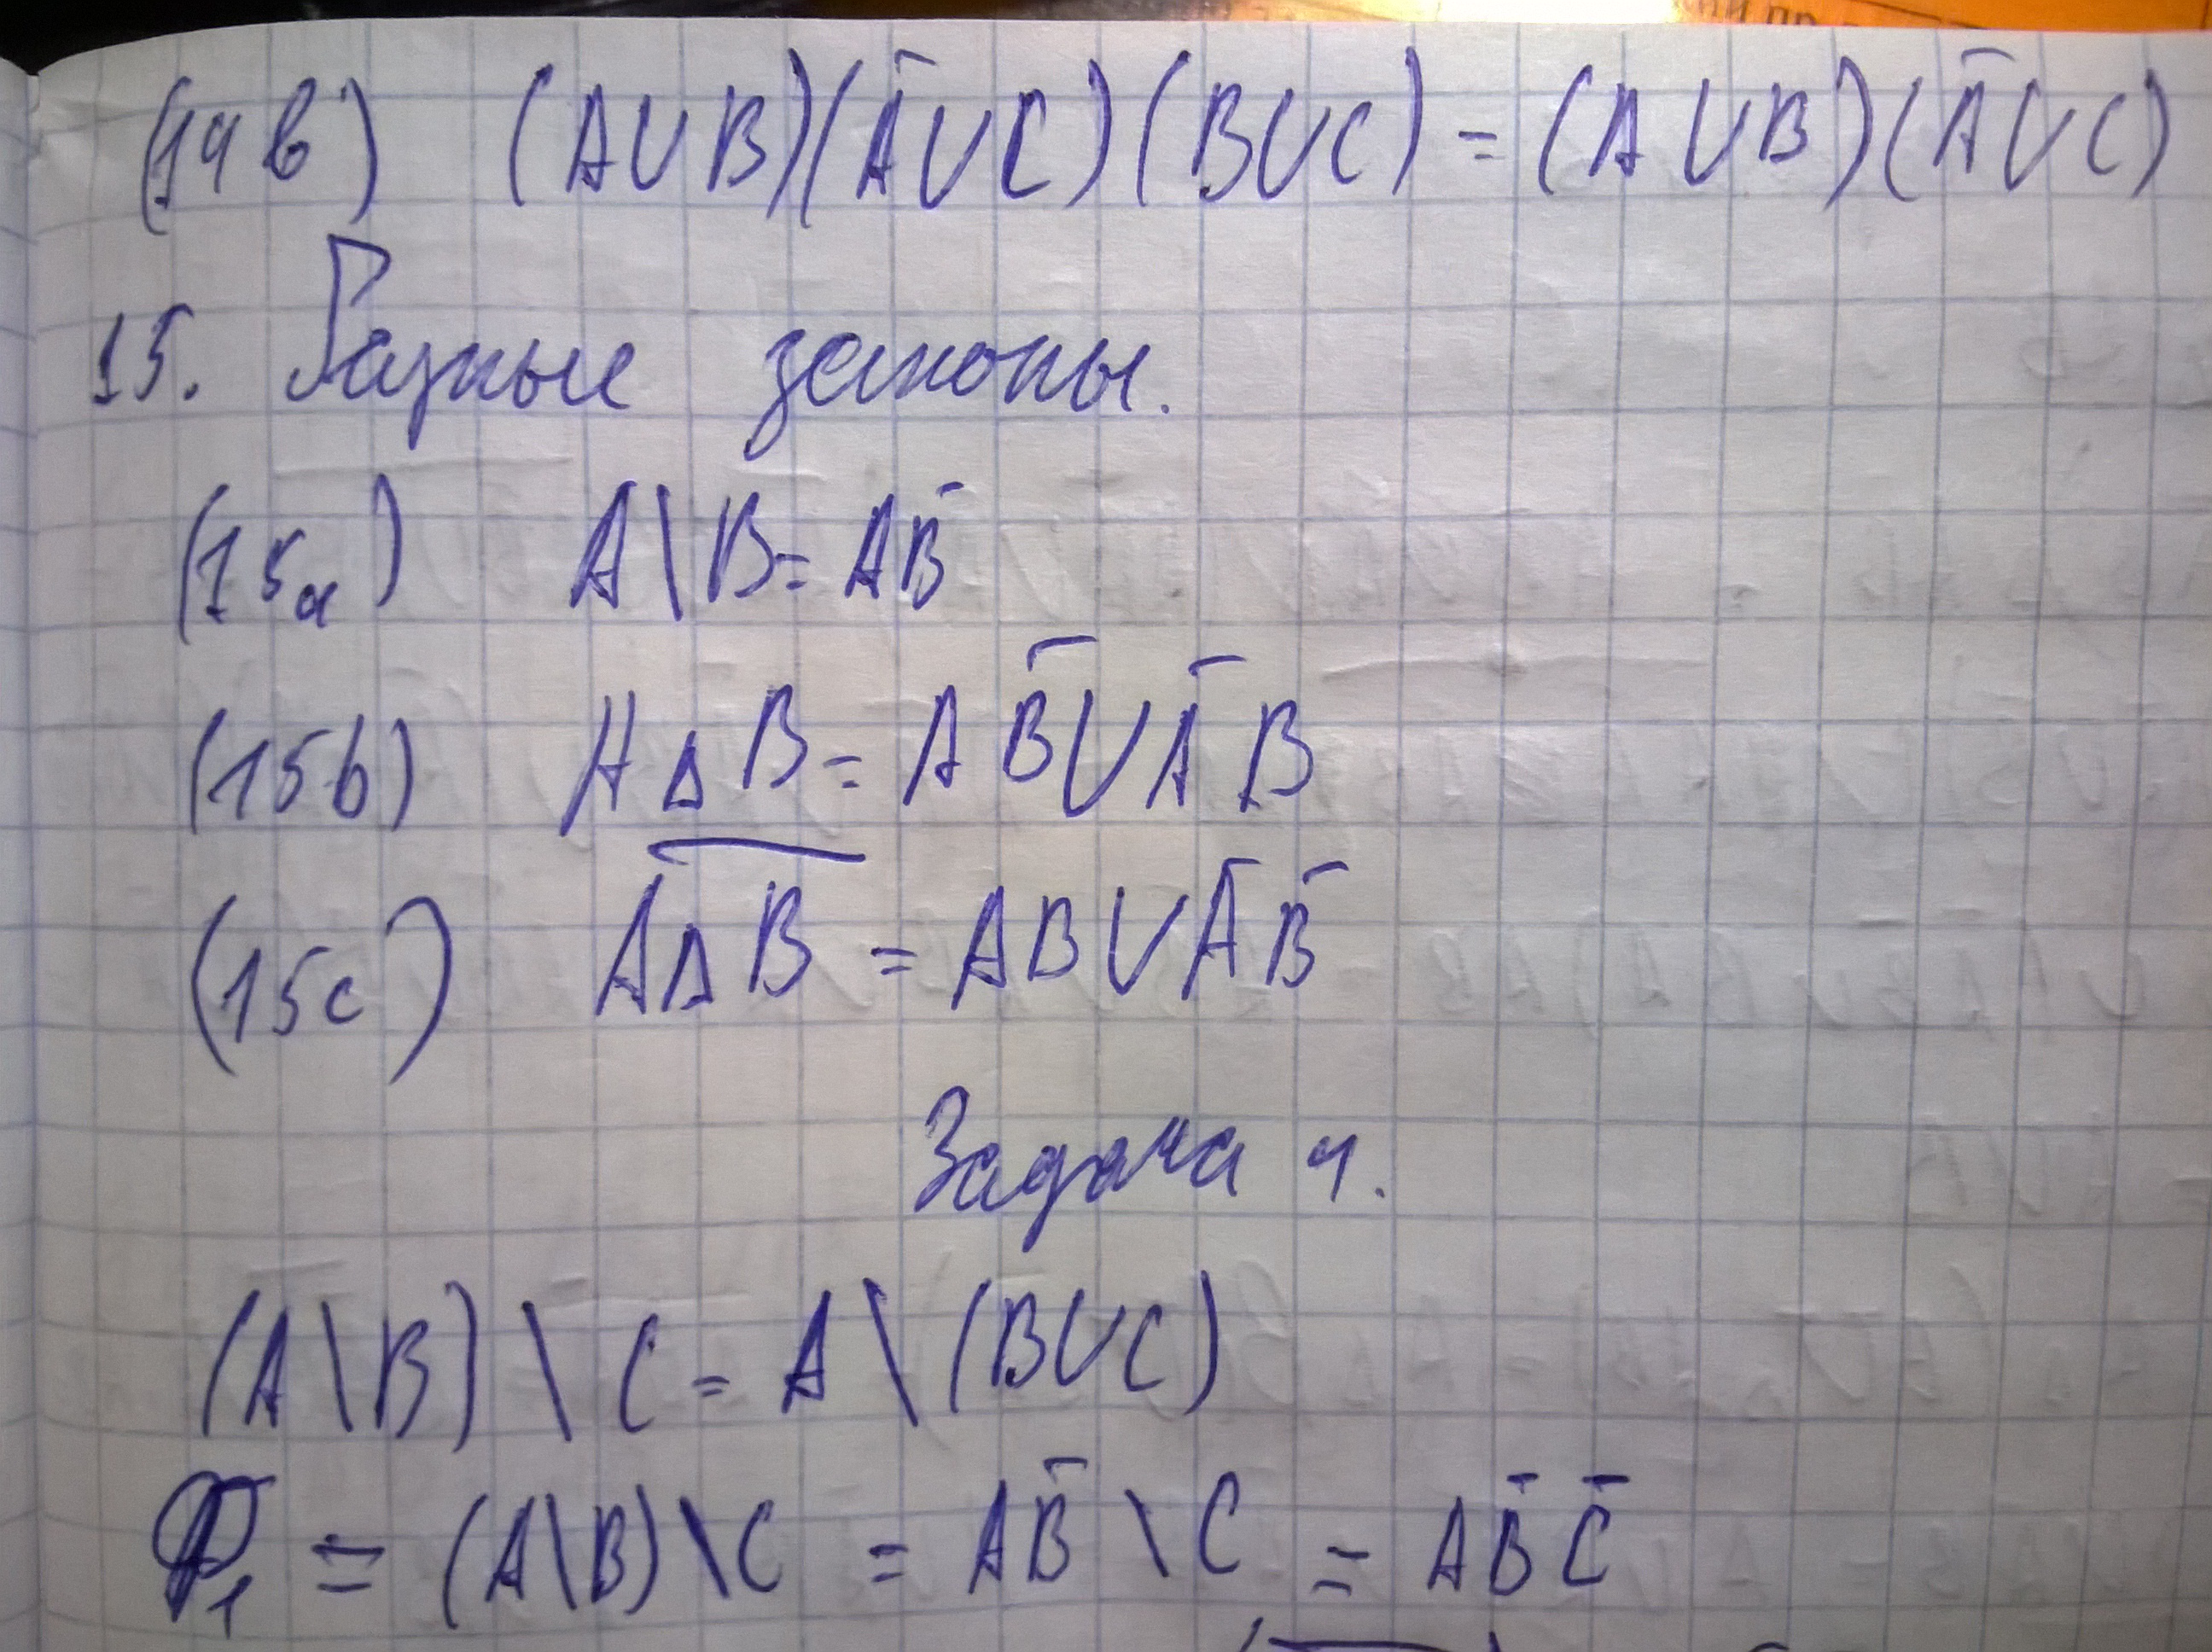 (14b) (A∪B)(A̅∪C)(B∪C) = (A∪B)(A̅∪C)
15. Разные законы.
(15a) A\B = AB̅
(15b) A∆B = AB̅∪A̅B
(15c) A̅∆̅B̅ = AB∪A̅B̅
Задача 1.
(A\B)\C = A\(B∪C)
P₁ = (A\B)\C = AB̅\C = AB̅C̅